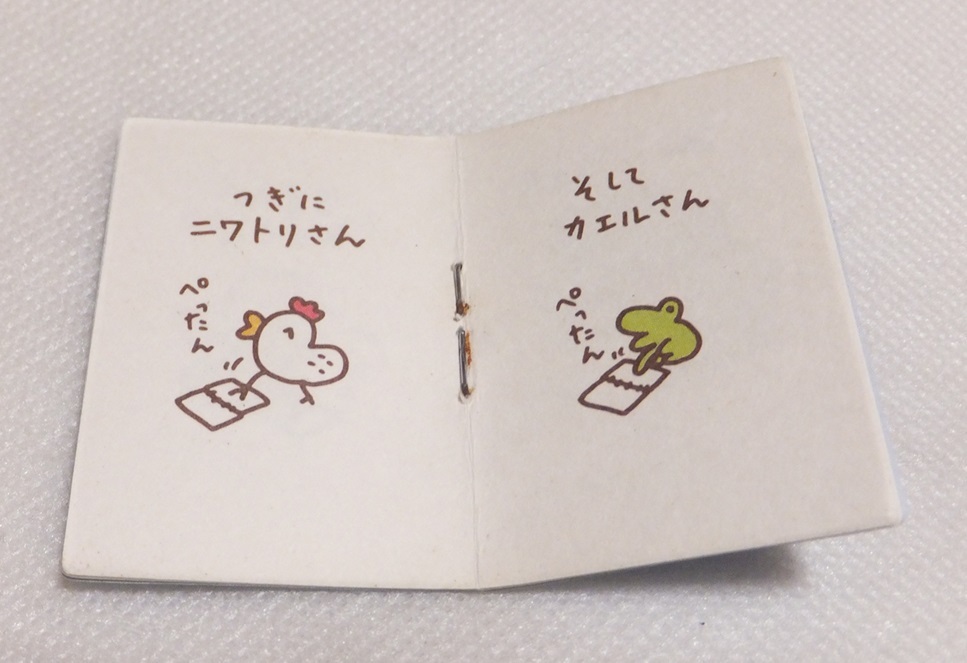 つぎに
ニワトリさん
ぺったん
そして
カエルさん
ぺったん